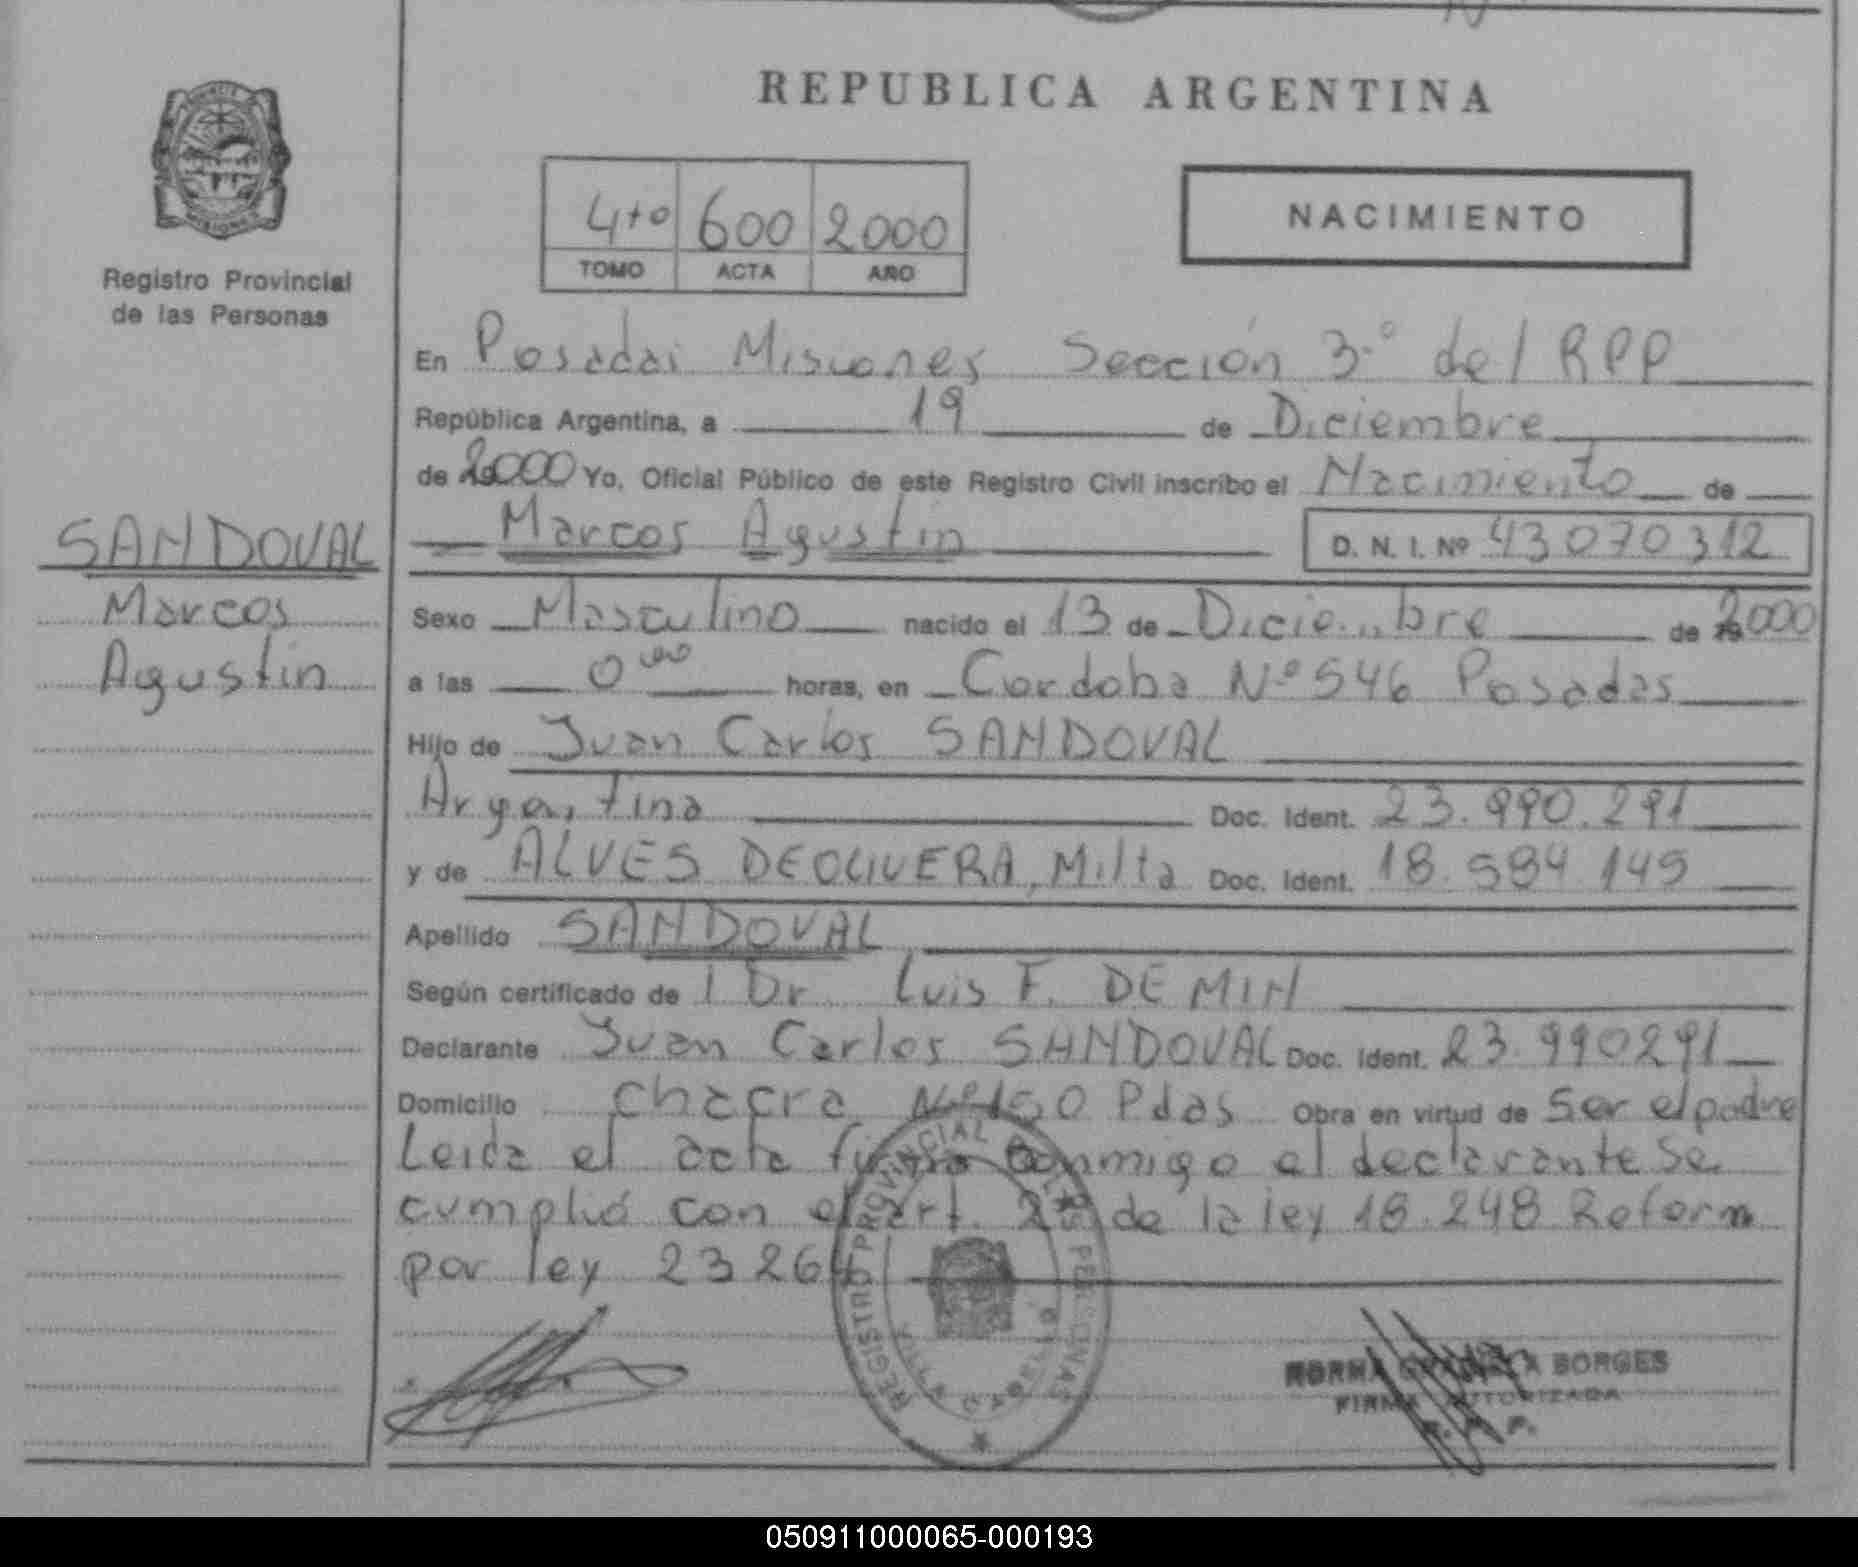 REPUBLICA ARGENTINA
PROVINCIA DE MISIONES
Registro Provincial
de las Personas
4to 600 2000
TOMO ACTA AÑO
NACIMIENTO
En Posadas Misiones Sección 3.° del RPP
República Argentina, a 19 de Diciembre
de 2000 Yo, Oficial Público de este Registro Civil inscribo el Nacimiento de
Marcos Agustin D. N. I. Nº 43070312
SANDOVAL
Marcos
Agustin
Sexo Masculino nacido el 13 de Diciembre de 2000
a las 0 00 horas, en Cordoba Nº 546 Posadas
Hijo de Juan Carlos SANDOVAL
Argentina Doc. Ident. 23.990.291
y de ALVES DEOLIVERA, Milta Doc. Ident. 18.584.145
Apellido SANDOVAL
Según certificado de l Dr Luis F. DEMIN
Declarante Juan Carlos SANDOVAL Doc. Ident. 23.990291
Domicilio Chacra Nº 150 Pdas Obra en virtud de Ser el padre
Leida el acta firma conmigo el declarante Se
cumplió con el art. 2º de la ley 18.248 Reform
por ley 23264
REGISTRO PROVINCIAL DE LAS PERSONAS
NORMA GRACIELA BORGES
FIRMA AUTORIZADA
050911000065-000193